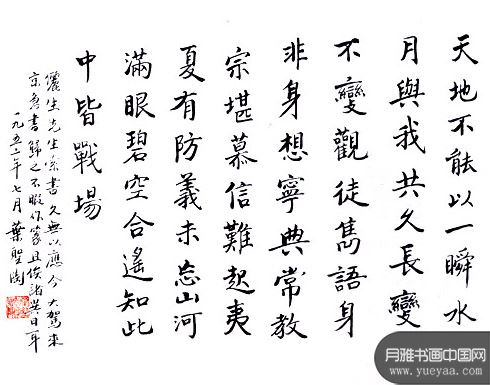 天地不能以一瞬水
月與我共久長變
不變觀徒雋語身
非身想寧典常教
宗堪慕信難起夷
夏有防義未忘山河
滿眼碧空合遙知此
中皆戰場
儷生先生索書久無以應今大駕來
京急書歸之不暇作篆且俟諸異日耳
一九五二年七月葉聖陶
月雅书画中国网
www.yueyaa.com